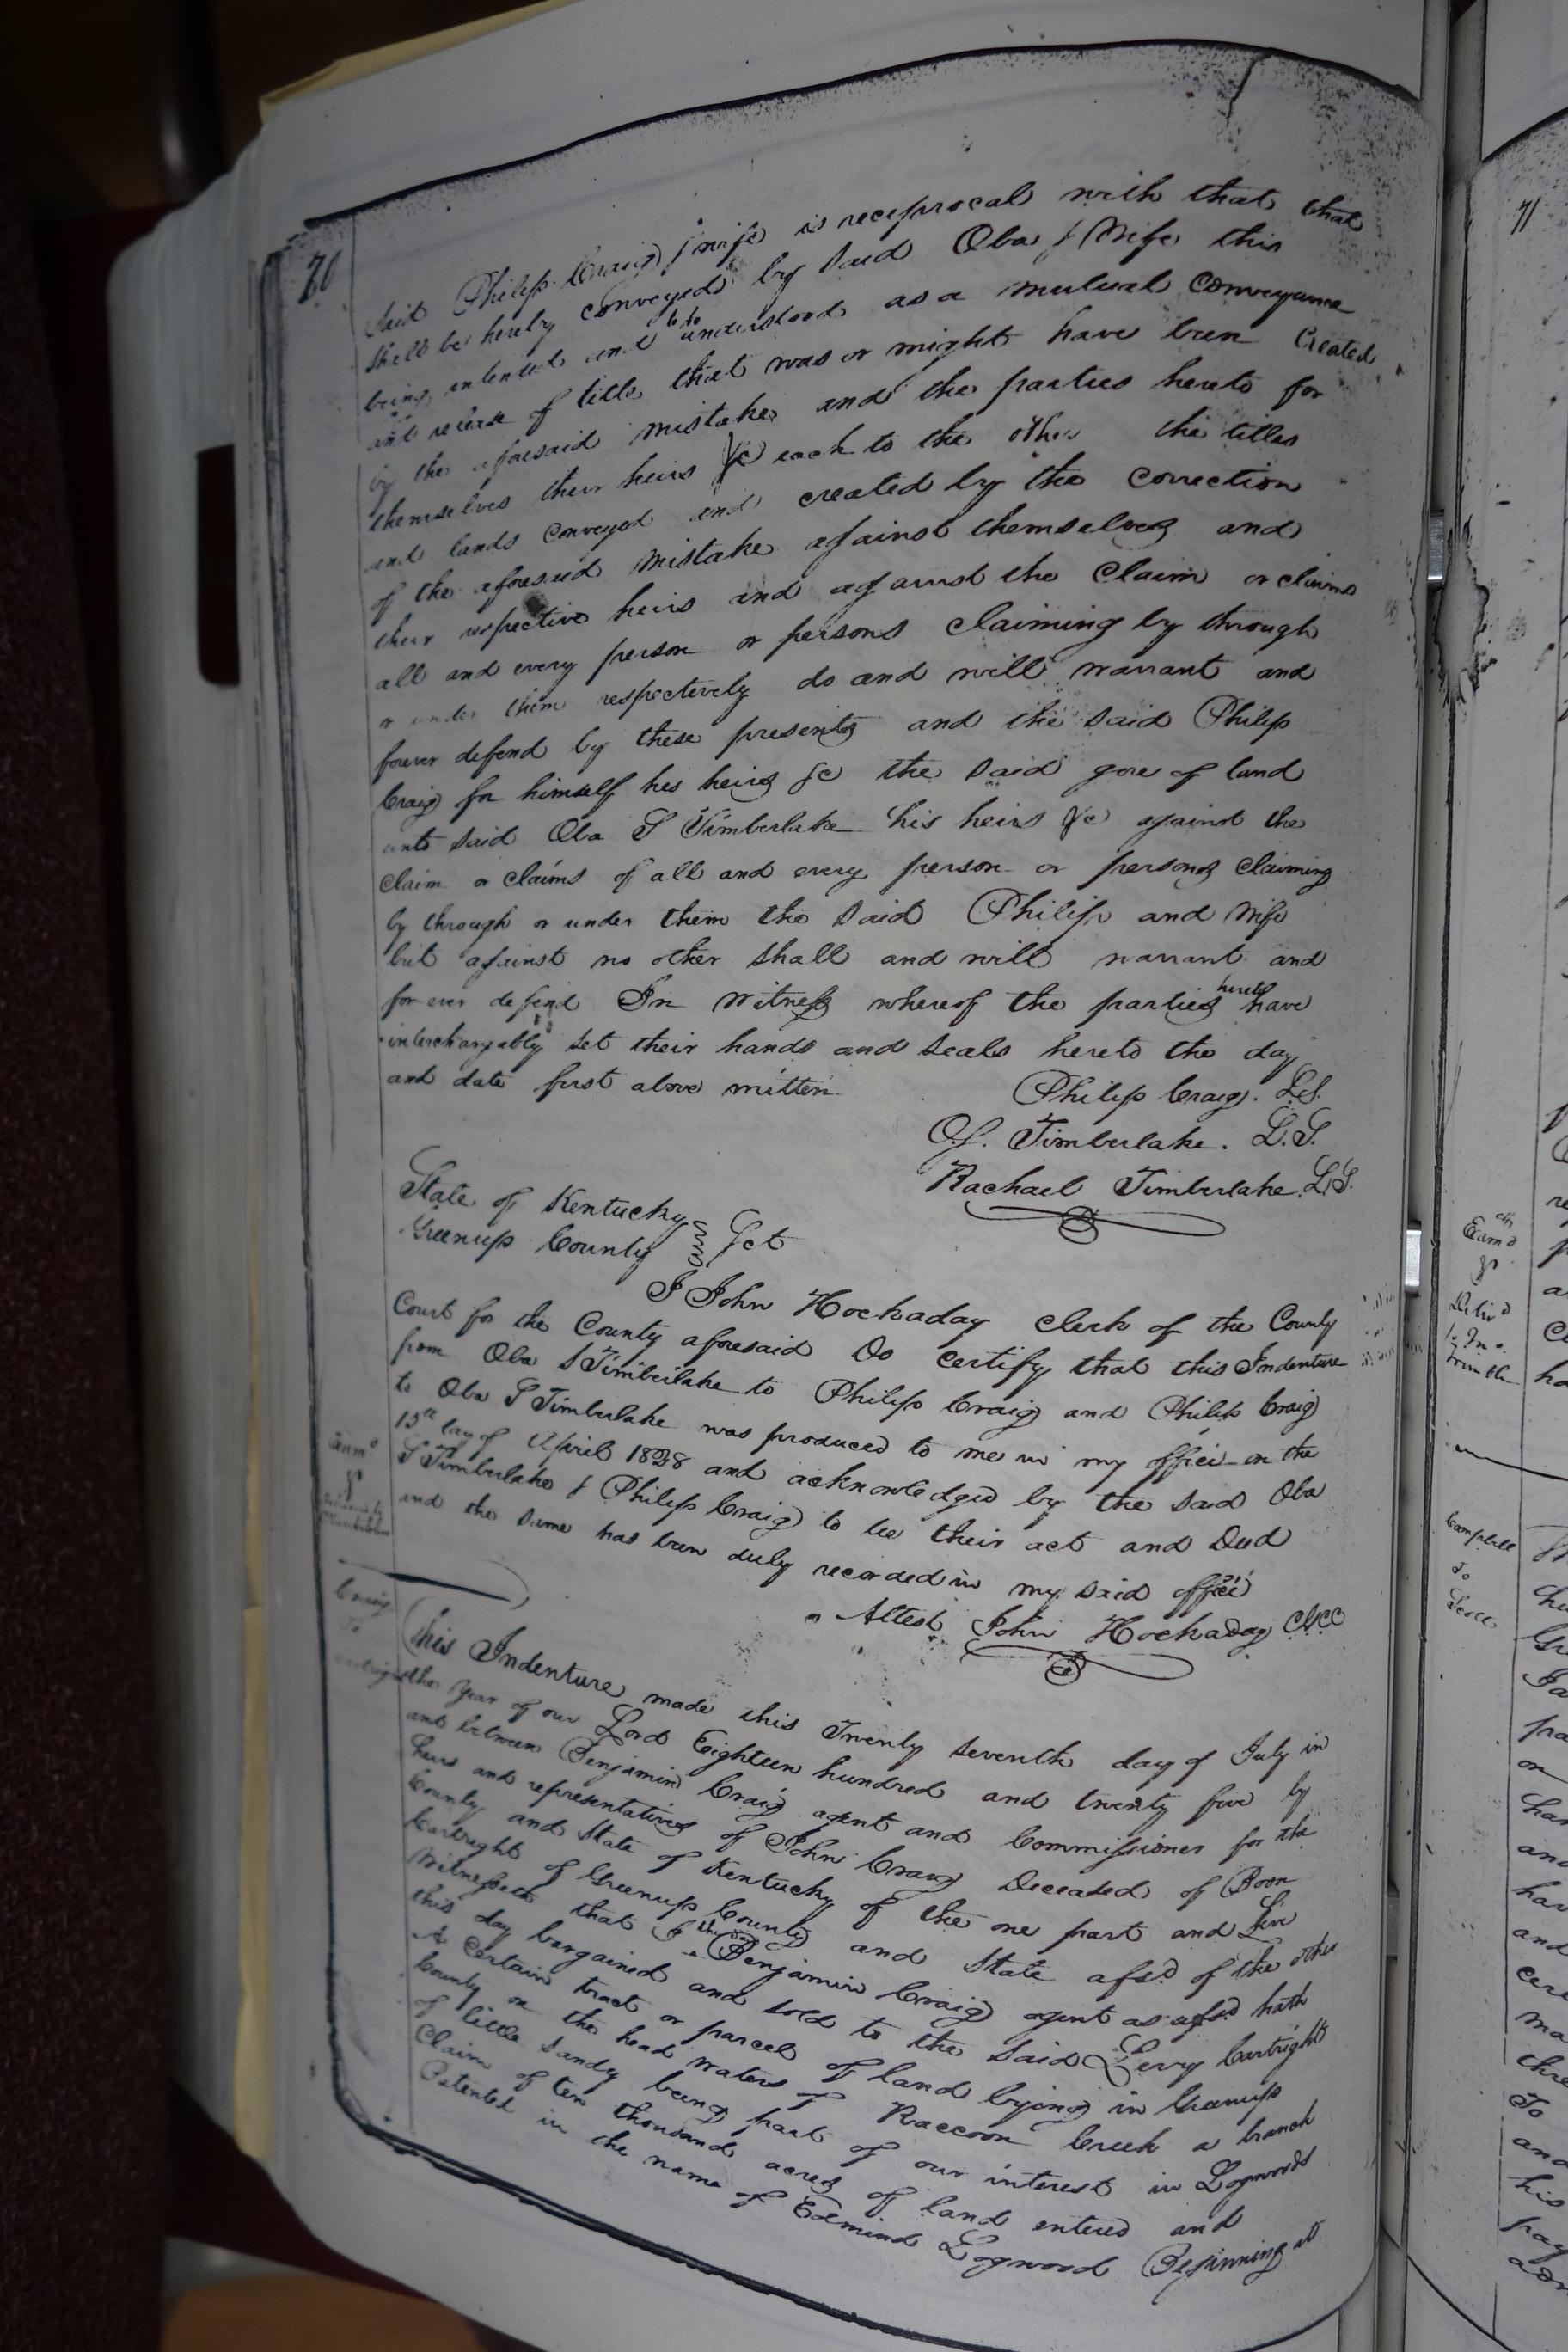 70
said Philip Craig & wife is reciprocal with that that
shall be hereby conveyed by said Oba & Wife this
being intended and to be understood as a mutual Conveyance
and release of title that was or might have been Created
by the aforesaid mistake and the parties hereto for
themselves their heirs &c each to the other the titles
and lands conveyed and created by the correction
of the aforesaid mistake against themselves and
their respective heirs and against the Claim or claims
all and every person or persons claiming by through
or under them respectively do and will warrant and
forever defend by these presents and the said Philip
Craig for himself his heirs &c the said gore of land
unto said Oba S Timberlake his heirs &c against the
claim or claims of all and every person or persons claiming
by through or under them the said Philip and Wife
but against no other shall and will warrant and
for ever defend In Witness whereof the parties hereto have
interchangably set their hands and seals hereto the day
and date first above written
Philip Craig. L.S.
O.S. Timberlake. L.S.
Rachael Timberlake. L.S.
State of Kentucky
Greenup County Sct
I John Hockaday Clerk of the County
Court for the County aforesaid Do Certify that this Indenture
from Oba S Timberlake to Philip Craig and Philip Craig
to Oba S Timberlake was produced to me in my office on the
15th day of April 1828 and acknowledged by the said Oba
S Timberlake & Philip Craig to be their act and Deed
and the same has been duly recorded in my said office
Attest John Hockaday CGCC
Exmd
Craig
To
This Indenture made this Twenty seventh day of July in
the year of our Lord Eighteen hundred and twenty five by
and between Benjamin Craig agent and Commissioner for the
heirs and representatives of John Craig Deceased of Boon
County and State of Kentucky of the one part and Levi
Cartright of Greenup County and State afsd of the other
Witnesseth that I the said Benjamin Craig agent as afsd hath
this day bargained and sold to the said Levy Cartright
A Certain tract or parcel of land lying in Greenup
County on the head waters of Raccoon Creek a branch
of little Sandy being part of our interest in Logwoods
Claim of ten thousand acres of land entered and
Patented in the name of Edmind Logwood Beginning at
71
Exmd
Campbell
To
Scott